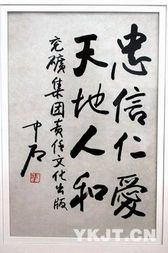 忠信仁爱
天地人和
兖矿集团责任文化出版
中石
YKJT.CN